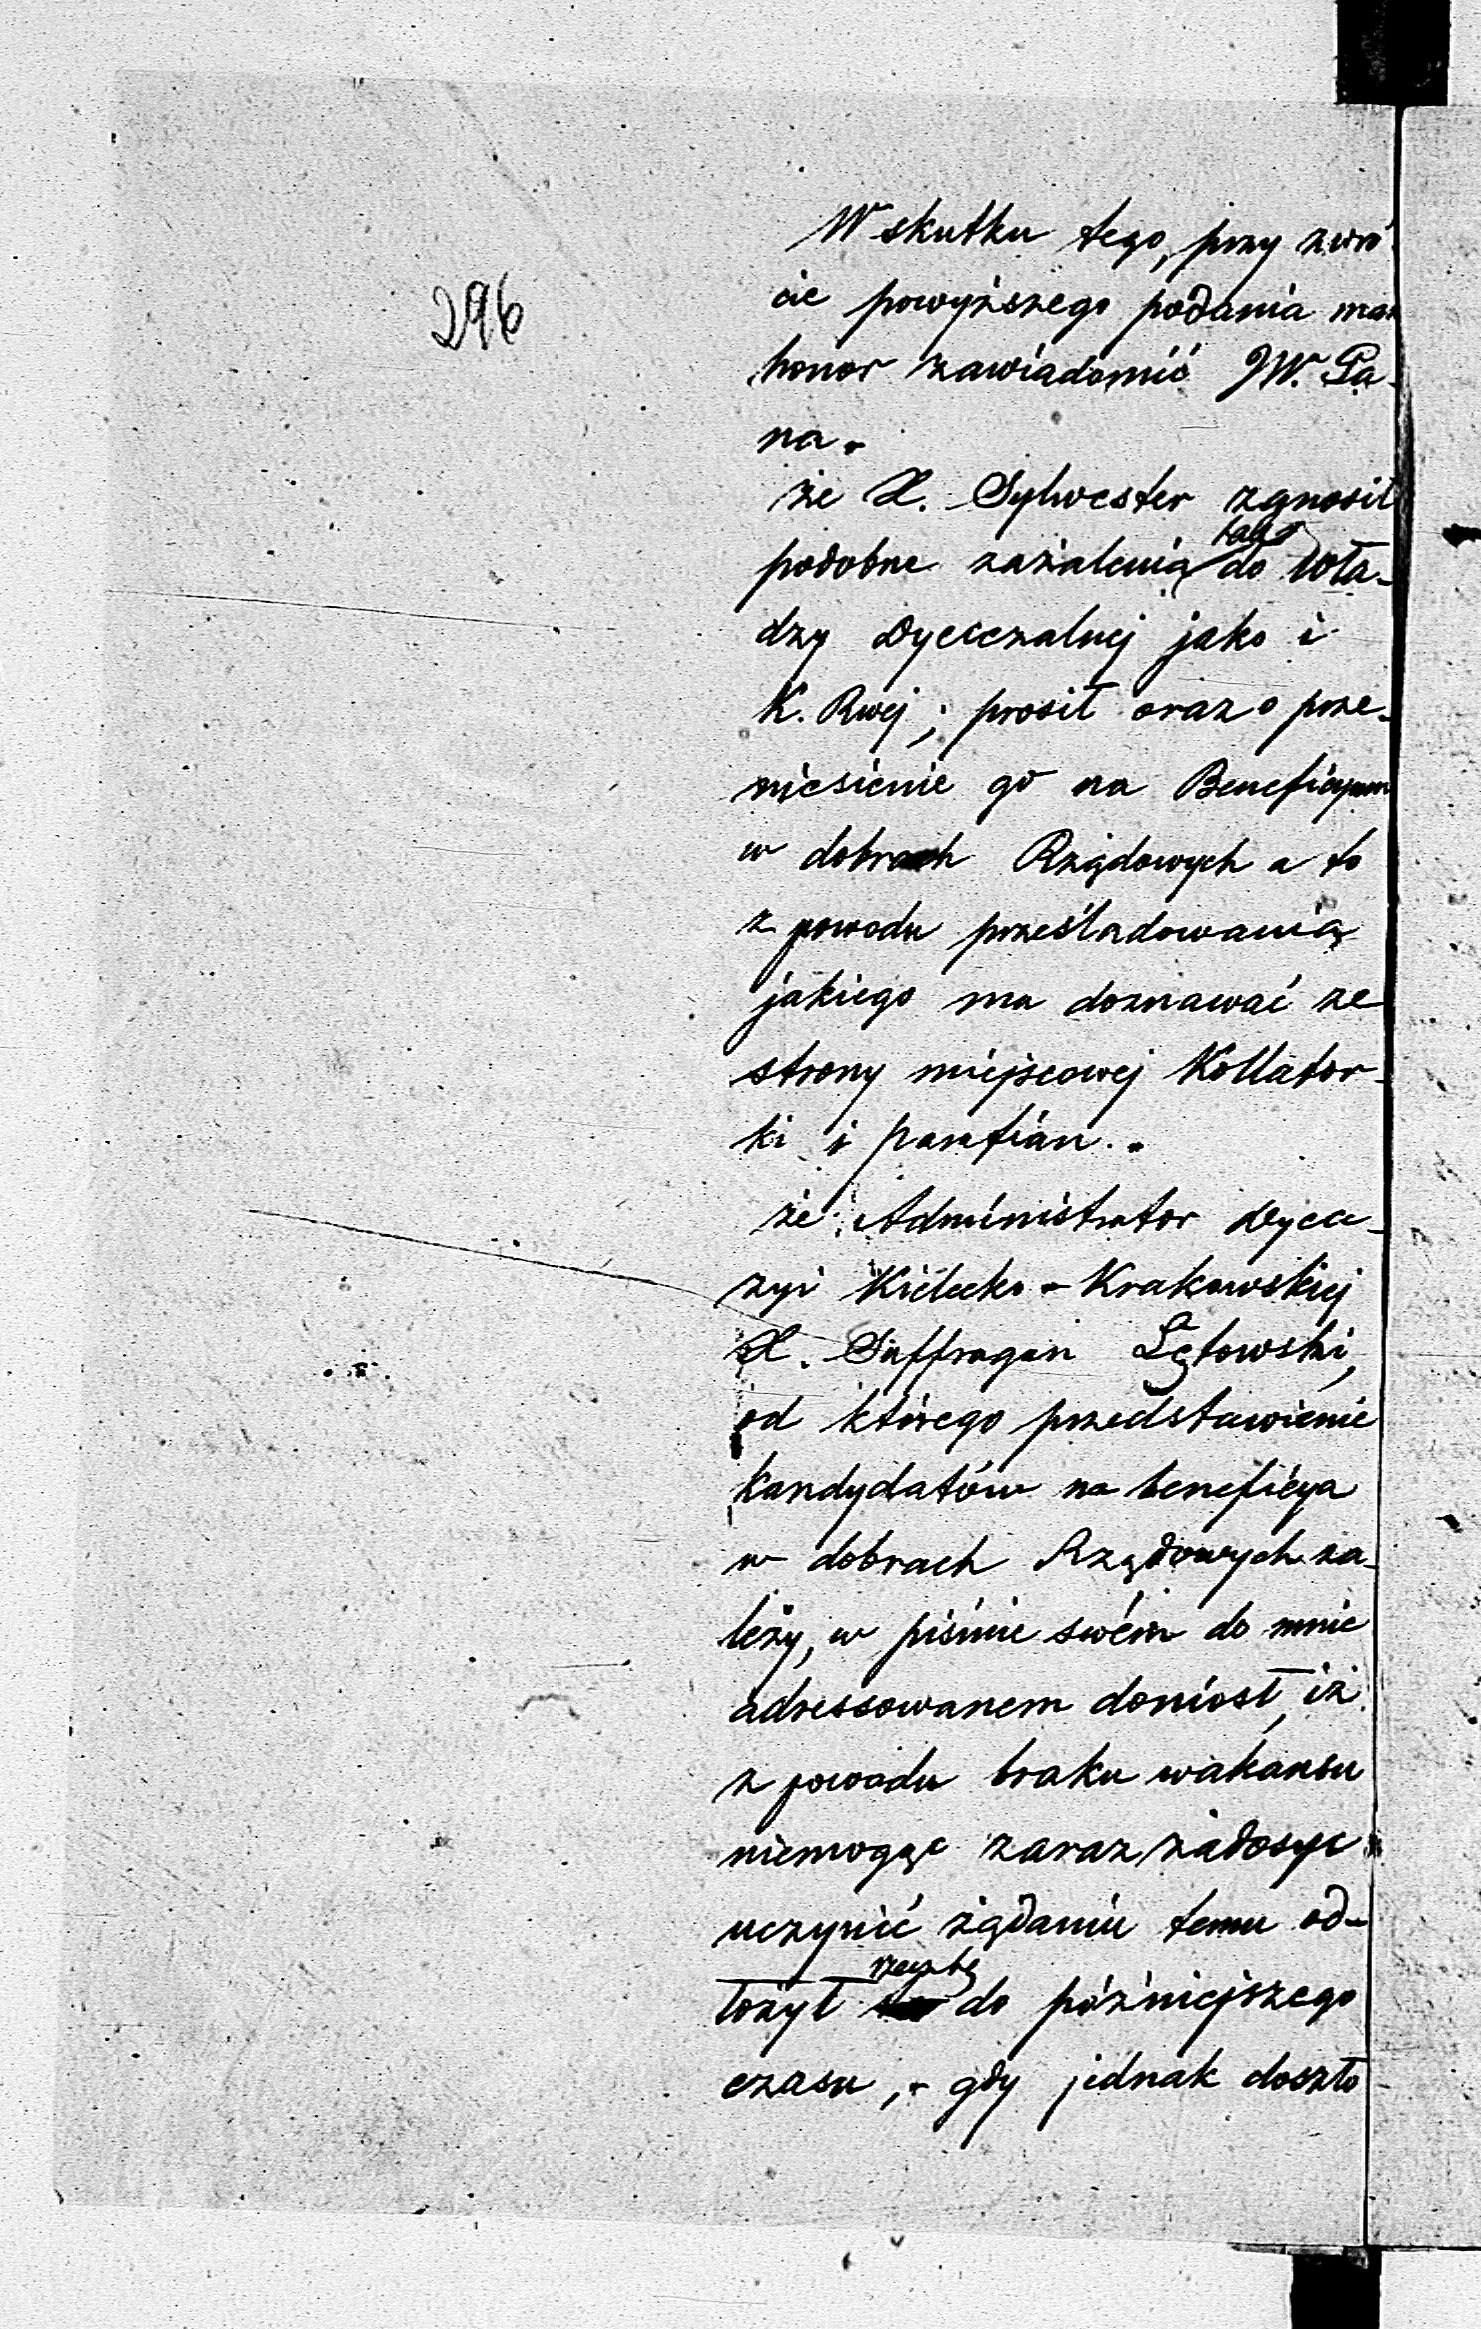 296
W skutku tego, przy zwró-
cie powyższego podania mam
honor zawiadomić JW. Pa-
na.
że X. Sylwester zgnosił
podobne zażalenia tak do Wła-
dzy Dyecezalnej jako i
K. Rwej; prosił oraz o prze-
niesienie go na Beneficyum
w dobrach Rządowych a to
z powodu prześladowania
jakiego ma doznawać ze
strony miejscowej Kollator-
ki i parafian.
że Administrator Dyece-
zyi Kielecko-Krakowskiej
X. Suffragan Łętowski,
od którego przedstawienie
kandydatów na beneficya
w dobrach Rządowych za-
leży, w piśmie swém do mnie
adressowanem doniosł, iż
z powodu braku wakansu
niemogąc zaraz zadosyc
uczynić żądaniu temu od-
łożył do późniejszego
czasu, - gdy jednak doszło